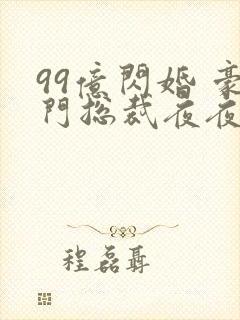 99億閃婚 豪
門总裁夜夜
程磊聶